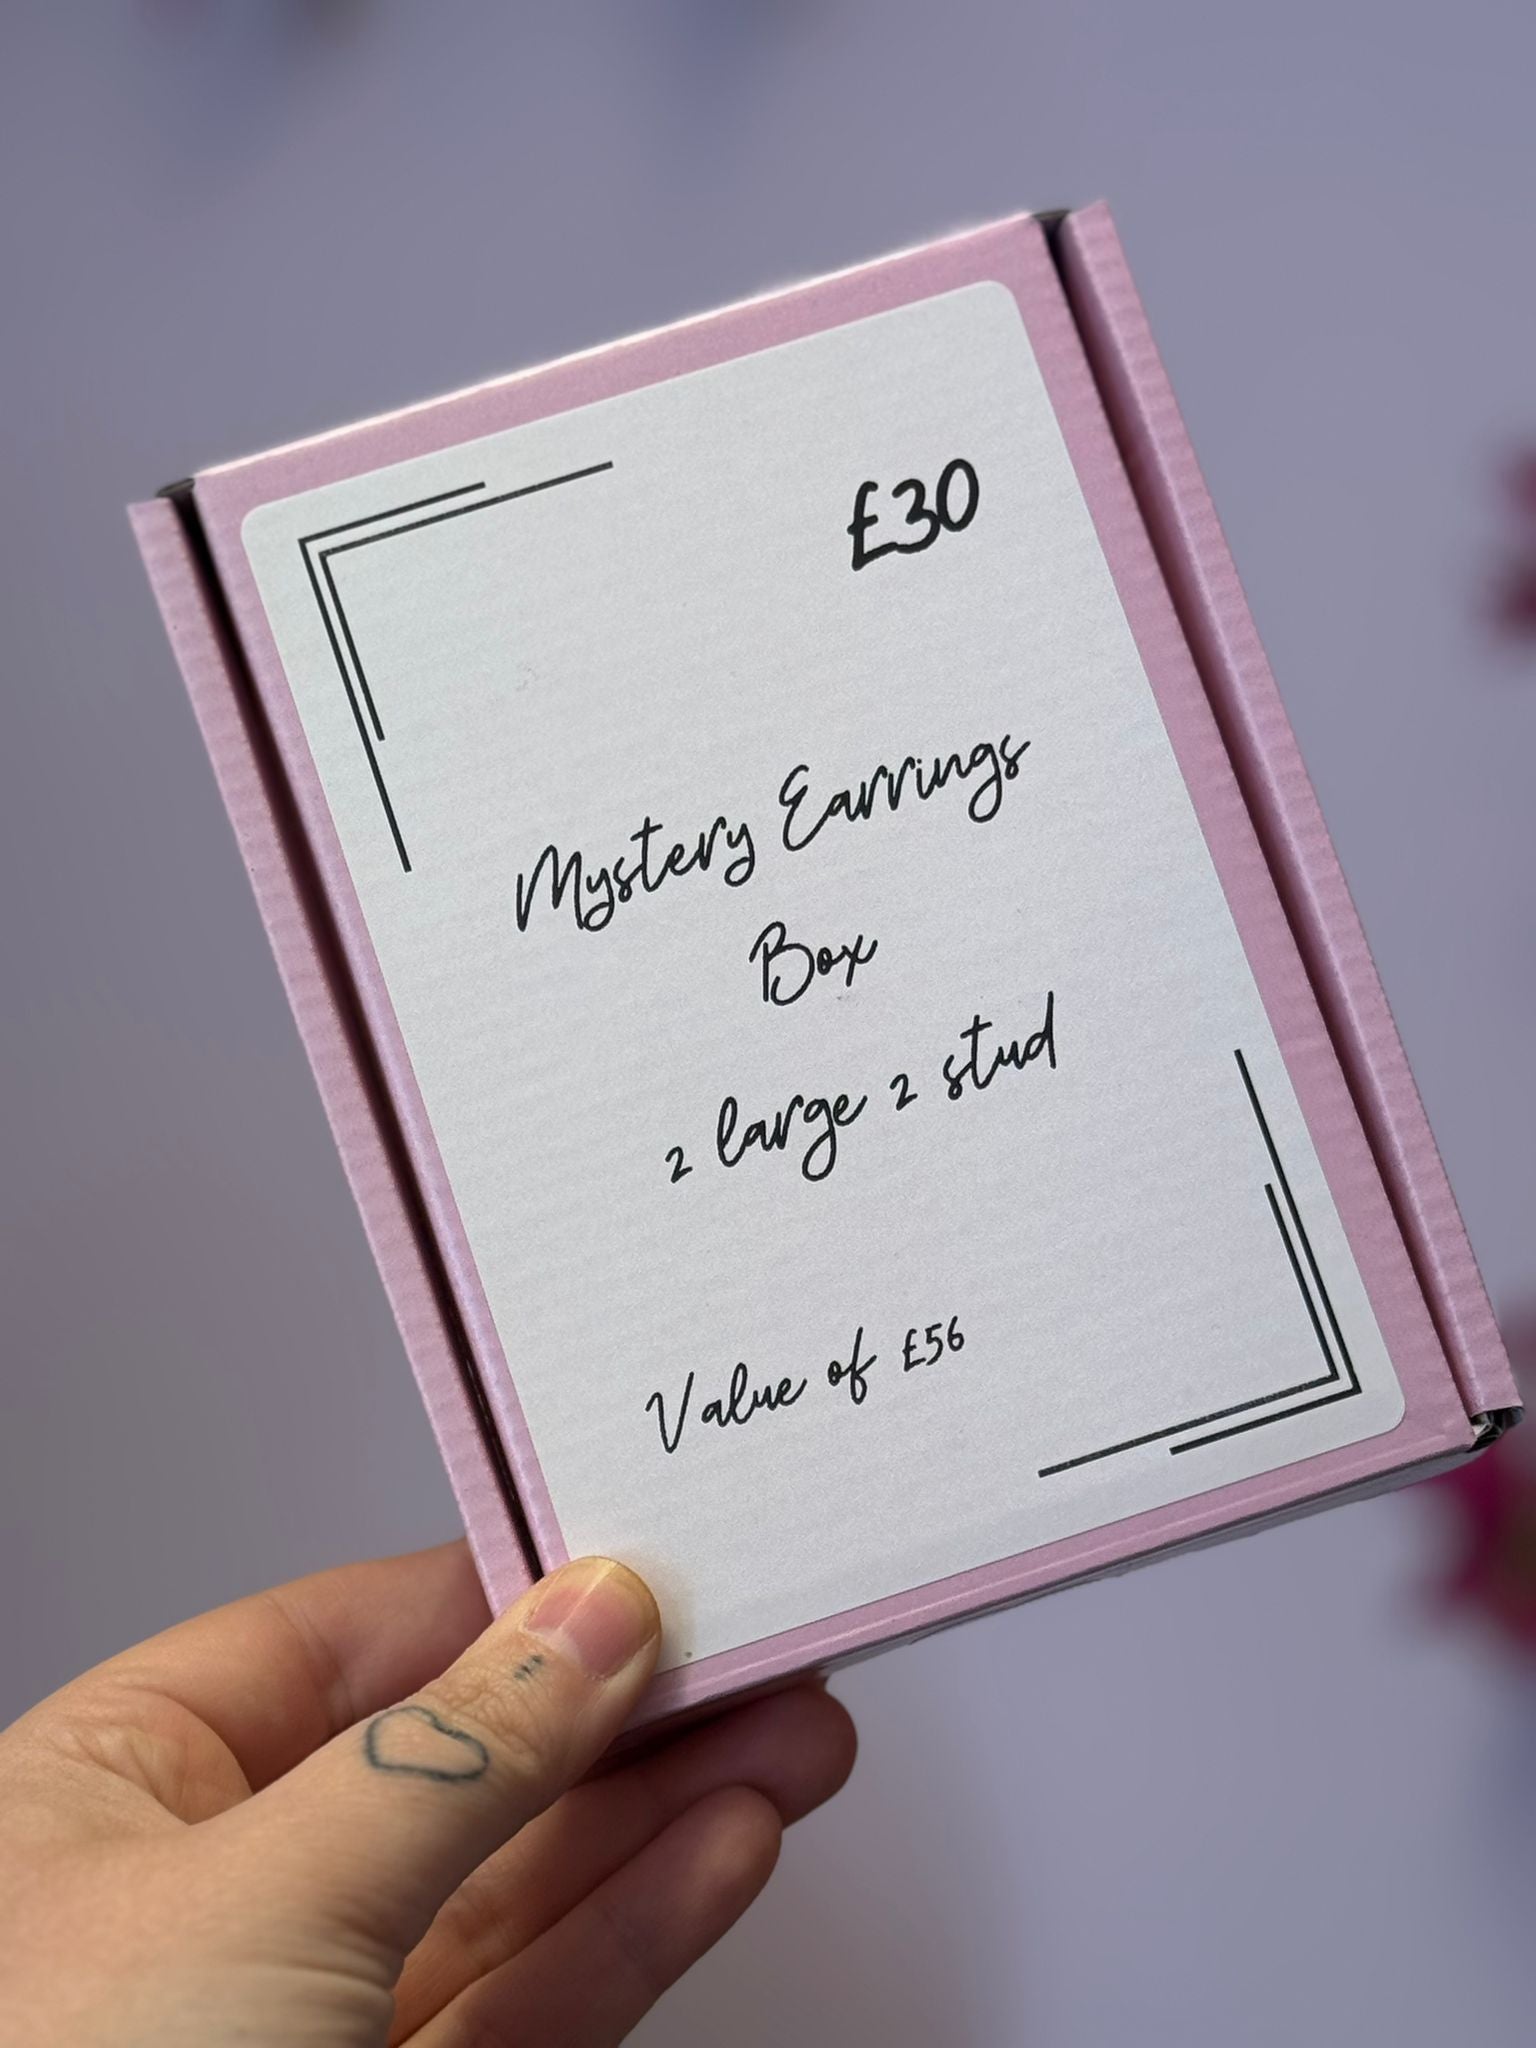 £30
Mystery Earrings
Box
2 large 2 stud
Value of £56